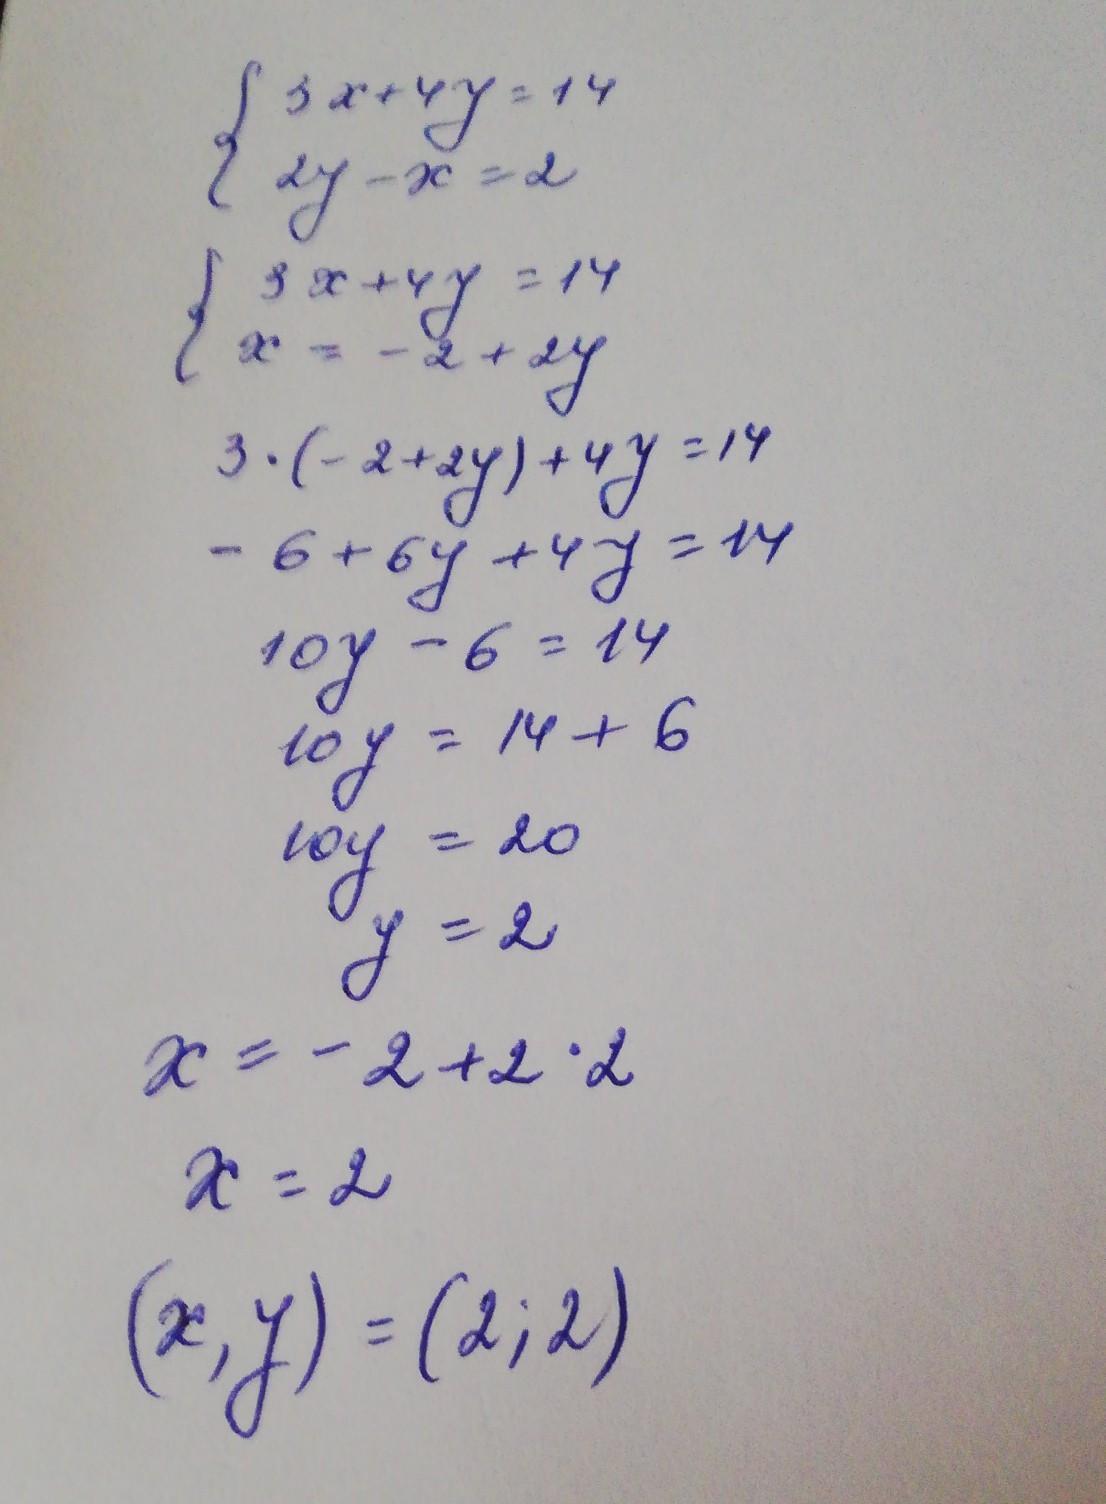 { 3x+4y=14
2y-x=2
{ 3x+4y=14
x=-2+2y
3·(-2+2y)+4y=14
-6+6y+4y=14
10y-6=14
10y=14+6
10y=20
y=2
x=-2+2·2
x=2
(x,y)=(2;2)